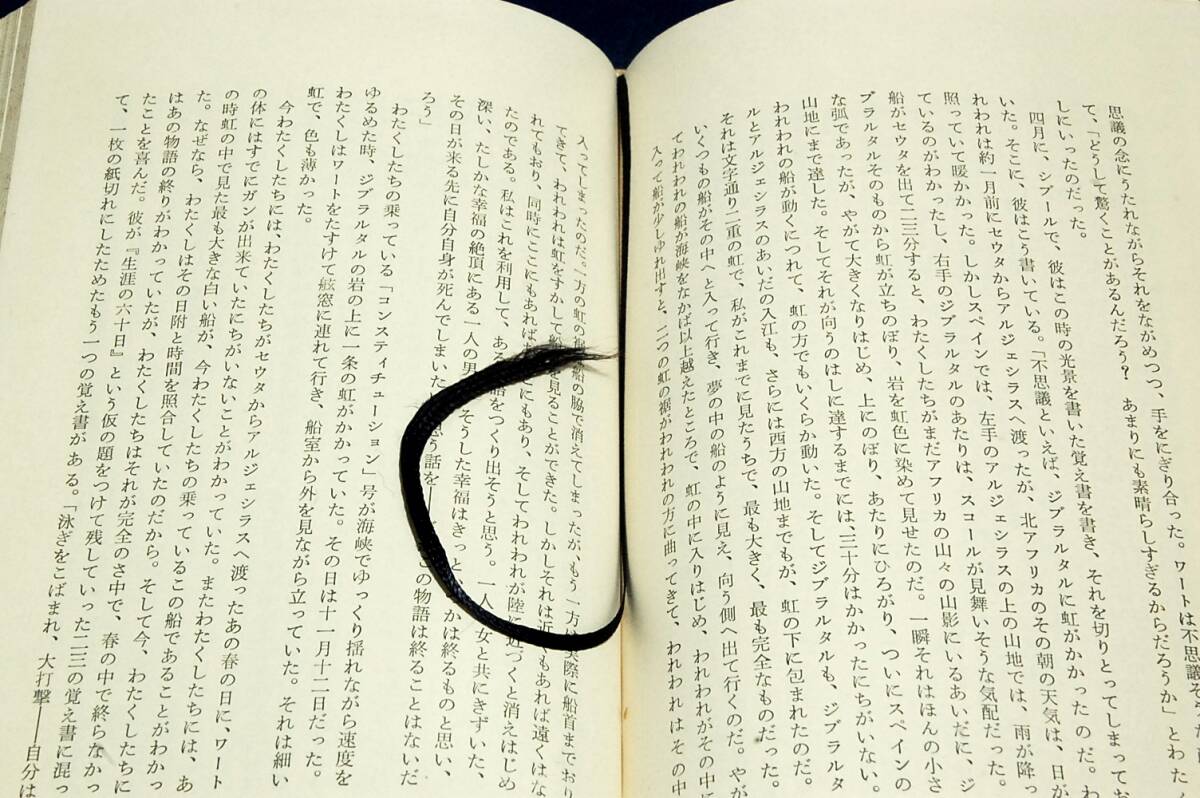 思議の念にうたれながらそれをながめつつ、手をにぎり合った。ワートは不思議そ
て、「どうして驚くことがあるんだろう？　あまりにも素晴らしすぎるからだろうか」とわたく
しにいったのだった。
四月に、シブールで、彼はこの時の光景を書いた覚え書を書き、それを切りとってしまってお
いた。そこに、彼はこう書いている。「不思議といえば、ジブラルタルに虹がかかったのだ。わ
れわれは約一月前にセウタからアルジェシラスへ渡ったが、北アフリカのその朝の天気は、日が
照っていて暖かかった。しかしスペインでは、左手のアルジェシラスの上の山地では、雨が降っ
ているのがわかったし、右手のジブラルタルのあたりは、スコールが見舞いそうな気配だった。
船がセウタを出て二三分すると、わたくしたちがまだアフリカの山々の山影にいるあいだに、ジ
ブラルタルそのものから虹が立ちのぼり、岩を虹色に染めて見せたのだ。一瞬それはほんの小さ
な弧であったが、やがて大きくなりはじめ、上にのぼり、あたりにひろがり、ついにスペインの
山地にまで達した。そしてそれが向うのはしに達するまでには、三十分はかかったにちがいない。
われわれの船が動くにつれて、虹の方でもいくらか動いた。そしてジブラルタルも、ジブラルタ
ルとアルジェシラスのあいだの入江も、さらには西方の山地までもが、虹の下に包まれたのだ。
それは文字通り二重の虹で、私がこれまでに見たうちで、最も大きく、最も完全なものだった。
いくつもの船がその中へと入って行き、夢の中の船のように見え、向う側へ出て行くのだ。やが
てわれわれの船が海峡をなかば以上越えたところで、虹の中に入りはじめ、われわれがその中に
入って船が少しゆれ出すと、二つの虹の裾がわれわれの方に曲ってきて、われわれはその中
入ってしまったのだ。一方の虹の裾 船の脇で消えてしまったが、もう一方は実際に船首までおり
てきて、われわれは虹をすかして船 を見ることができた。しかしそれは近くもあれば遠くはな
れてもおり、同時にここにもあれば にもあり、そしてわれわれが陸に近づくと消えはじめ
たのである。私はこれを利用して、ある 語をつくり出そうと思う。一人 女と共にきずいた、
深い、たしかな幸福の絶頂にある一人の男 そうした幸福はきっと かは終るものと思い、
その日が来る先に自分自身が死んでしまいた 思う話を── の物語は終ることはないだ
ろう」
わたくしたちの乗っている「コンスティチューション」号が海峡でゆっくり揺れながら速度を
ゆるめた時、ジブラルタルの岩の上に一条の虹がかかっていた。その日は十一月十二日だった。
わたくしはワートをたすけて舷窓に連れて行き、船室から外を見ながら立っていた。それは細い
虹で、色も薄かった。
今わたくしたちには、わたくしたちがセウタからアルジェシラスへ渡ったあの春の日に、ワート
の体にはすでにガンが出来ていたにちがいないことがわかっていた。またわたくしたちには、あ
の時虹の中で見た最も大きな白い船が、今わたくしたちの乗っているこの船であることがわかっ
た。なぜなら、わたくしはその日附と時間を照合していたのだから。そして今、わたくしたちに
はあの物語の終りがわかっていたが、わたくしたちはそれが完全のさ中で、春の中で終らなかっ
たことを喜んだ。彼が『生涯の六十日』という仮の題をつけて残していった二三の覚え書に混っ
て、一枚の紙切れにしたためたもう一つの覚え書がある。「泳ぎをこばまれ、大打撃──自分は